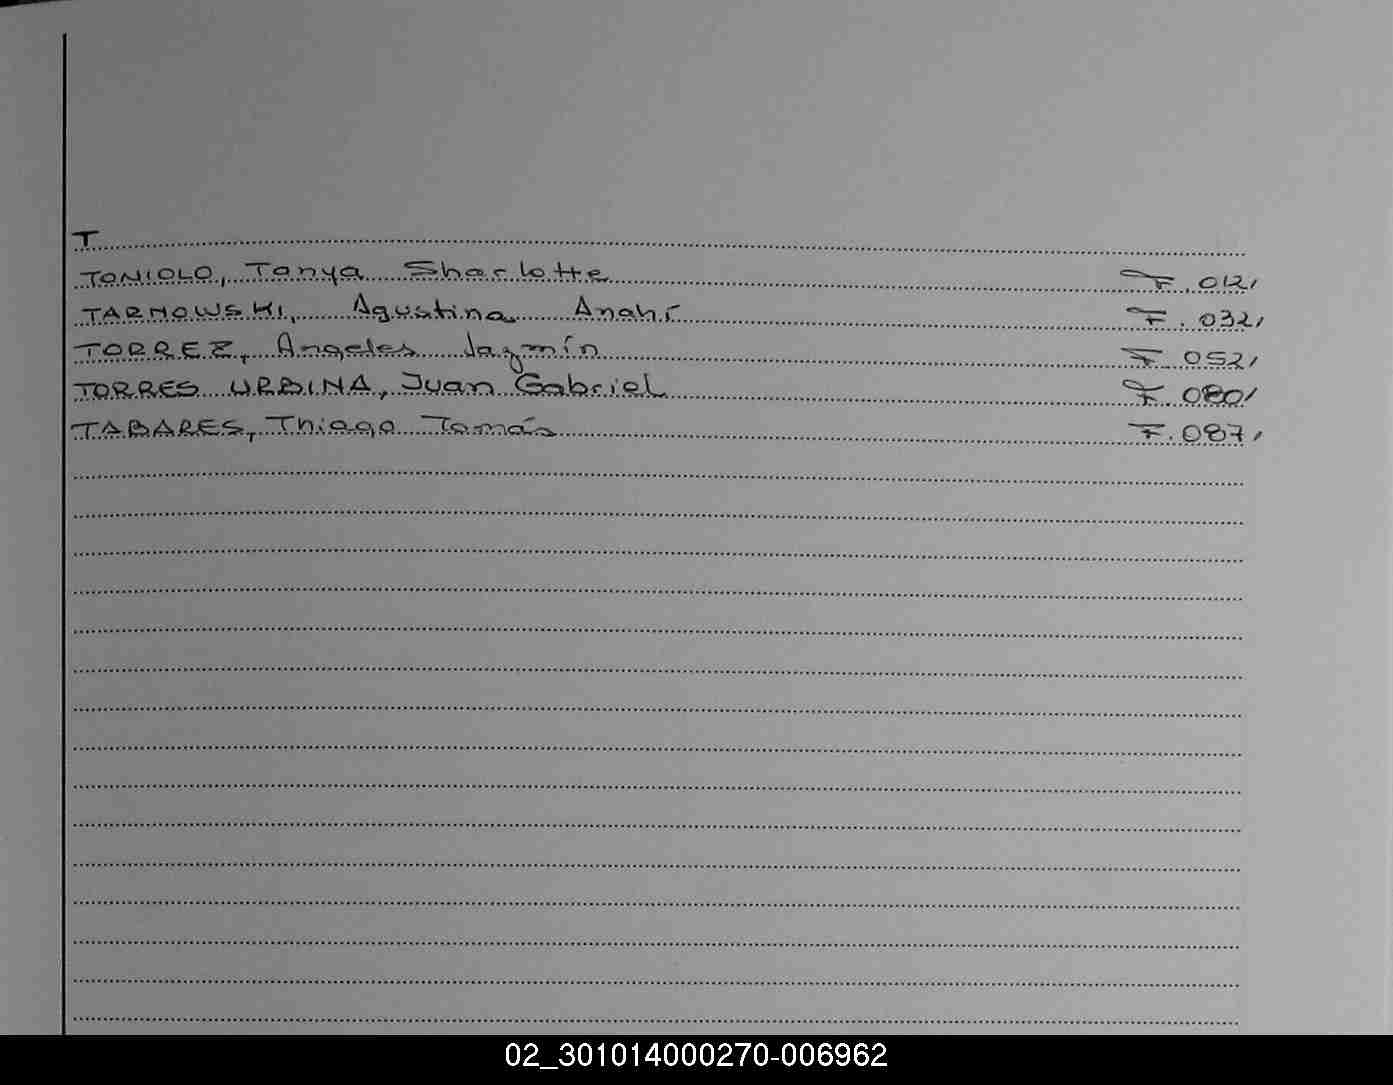 T
TONIOLO, Tanya Sharlotte F. 012,
TARNOWSKI, Agustina Anahí F. 032,
TORREZ, Angeles Jazmín F. 052,
TORRES URBINA, Juan Gabriel F. 080,
TABARES, Thiago Tomás F. 087,
02_301014000270-006962